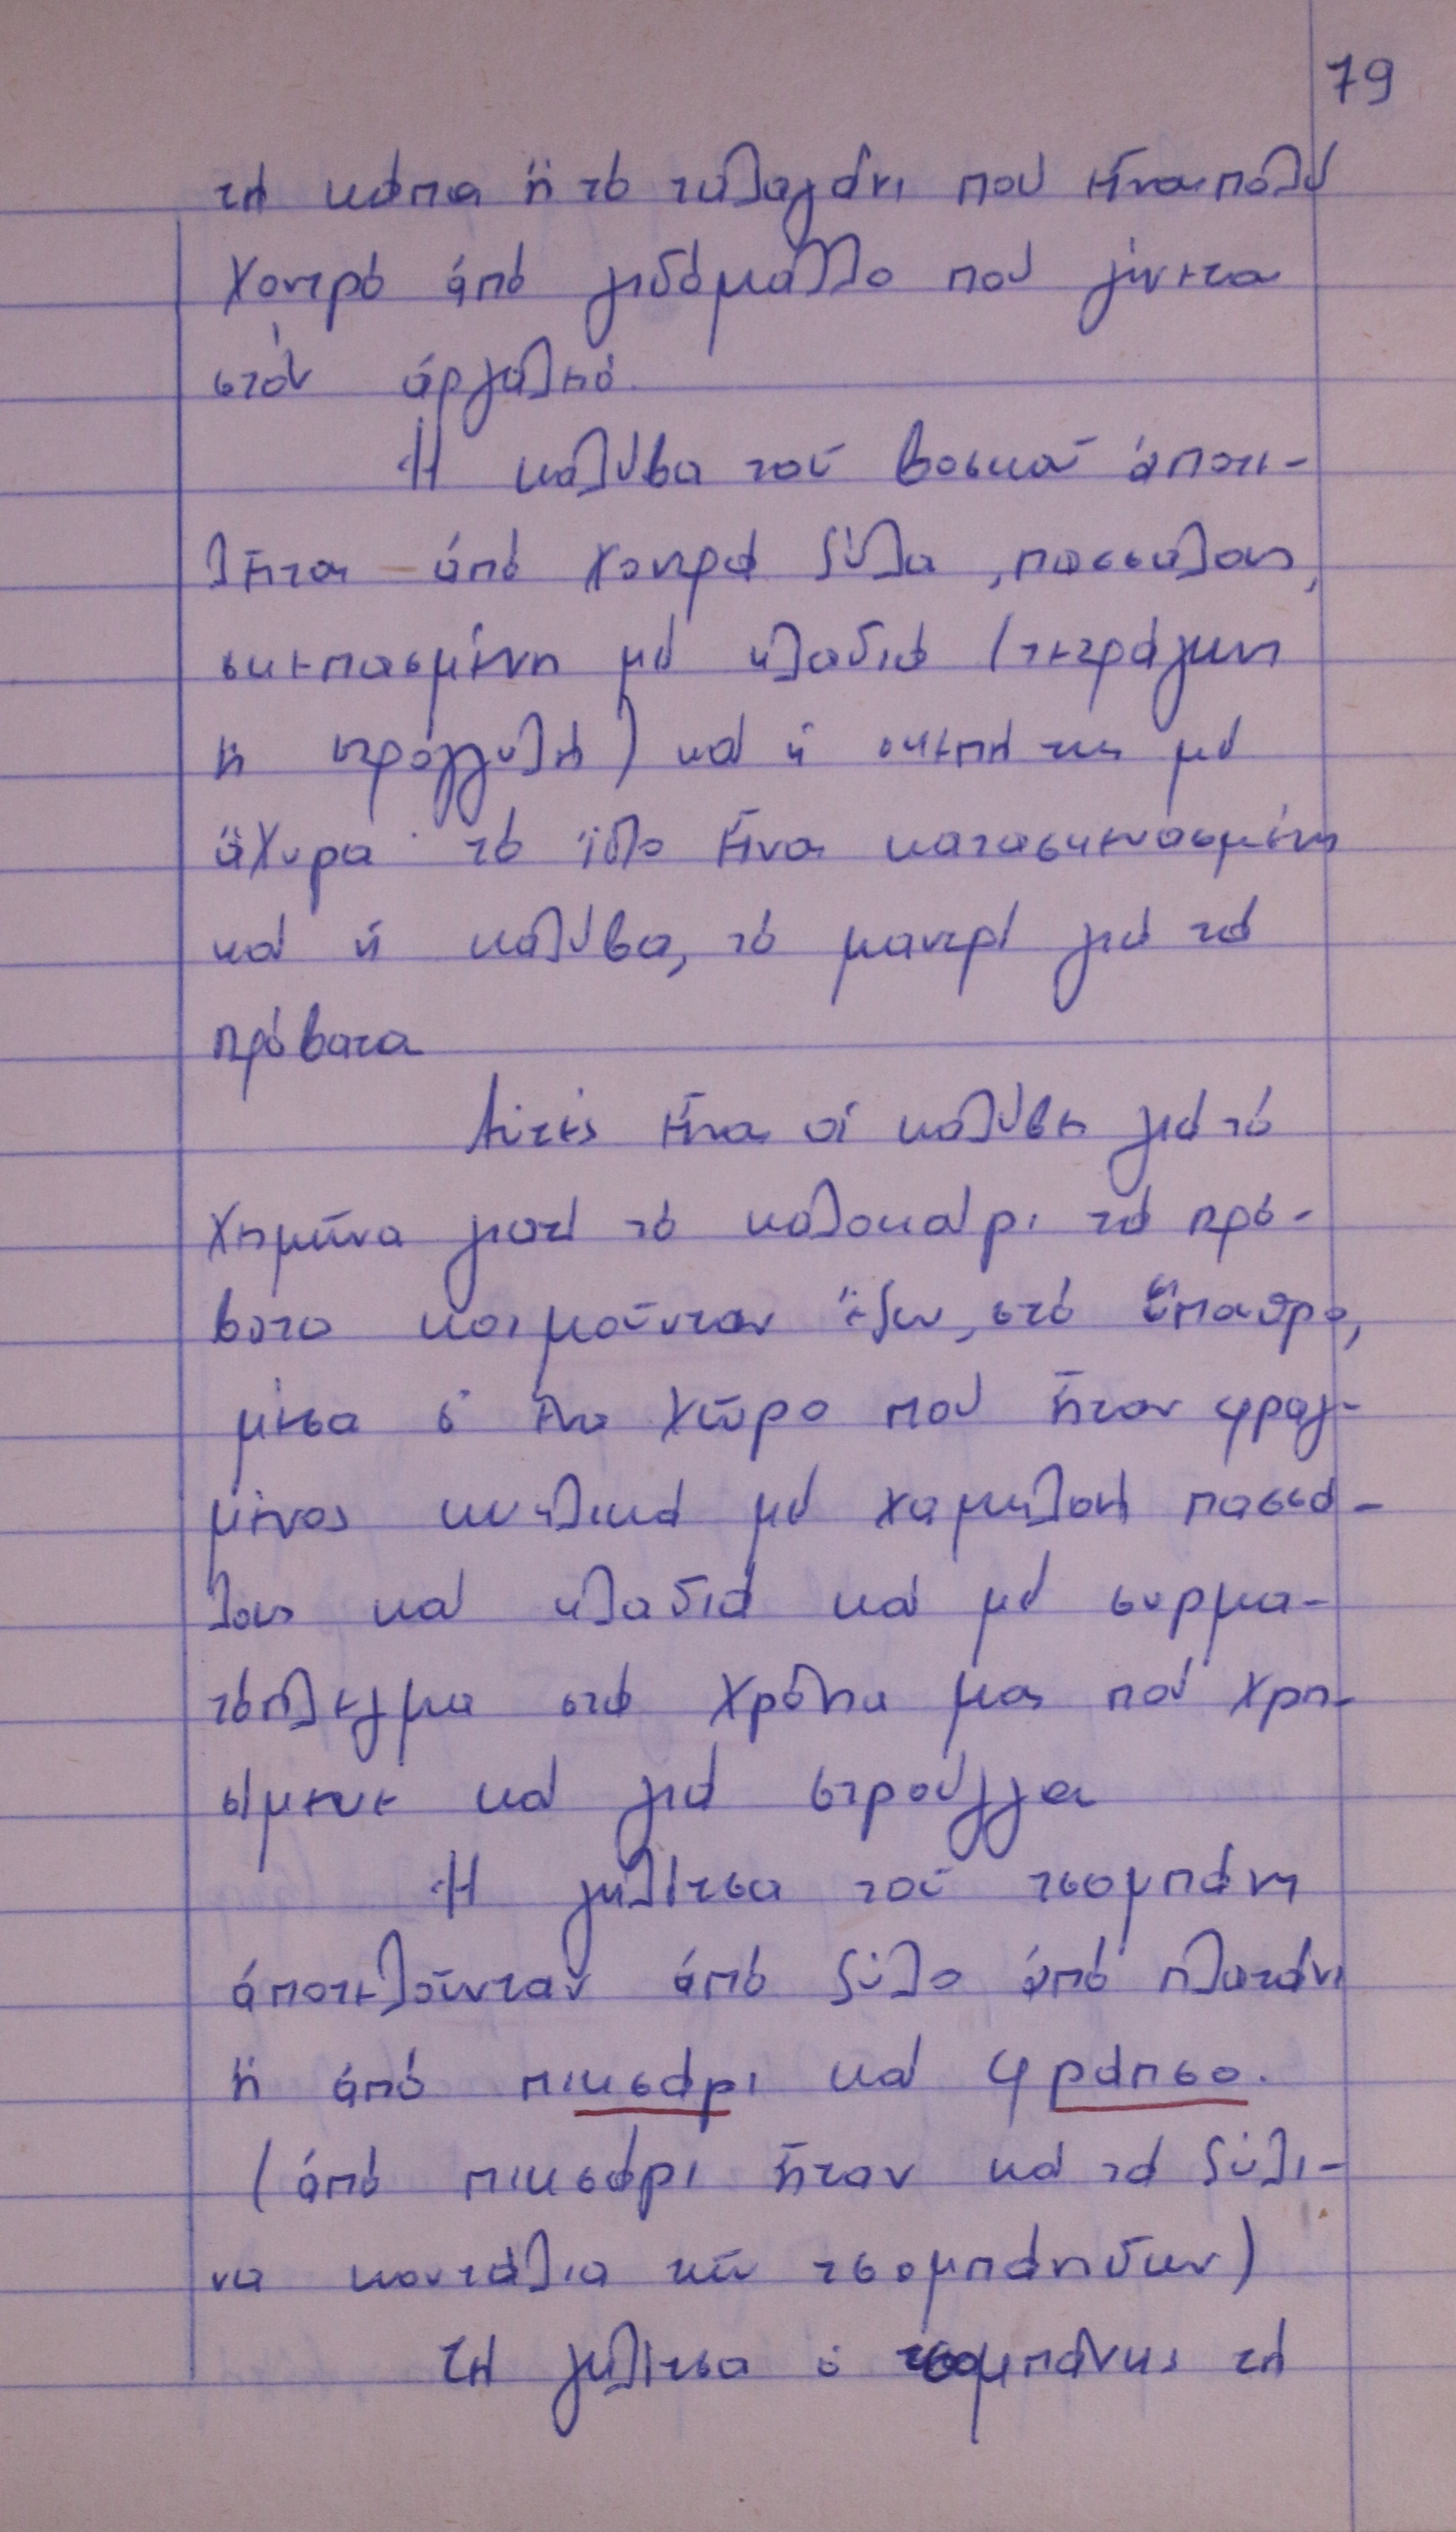 79
τή κάπα ἤ τό ταλαγάνι πού εἶναι πολύ
χοντρό ἀπό γιδόμαλλο πού γίνεται
στόν ἀργαλειό.
Ἡ καλύβα τοῦ βοσκοῦ ἀποτε-
λεῖται ἀπό χοντρά ξύλα, πασσάλους,
σκεπασμένη μέ κλαδιά (τετράγωνη
ἤ στρόγγυλη) καί ἡ σκεπή της μέ
ἄχυρα· τό ἴδιο εἶναι κατασκευασμένη
καί ἡ καλύβα, τό μαντρί γιά τά
πρόβατα
Αὐτές εἶναι οἱ καλύβες γιά τό
χειμῶνα γιατί τό καλοκαίρι τά πρό-
βατα κοιμοῦνταν ἔξω, στό ὕπαιθρο,
μέσα σ' ἕνα χῶρο πού ἦταν φραγ-
μένος κυκλικά μέ χαμηλούς πασσά-
λους καί κλαδιά καί μέ συρμα-
τόπλεγμα στά χρόνια μας πού χρη-
σίμευε καί γιά στρούγγα
Ἡ γκλίτσα τοῦ τσομπάνη
ἀποτελοῦνταν ἀπό ξύλο ἀπό πλατάνι
ἤ ἀπό πικσάρι καί φράπσο.
(ἀπό πικσάρι ἦταν καί τά ξύλι-
να κουτάλια τῶν τσομπάνηδων)
Τή γκλίτσα ὁ τσομπάνης τή